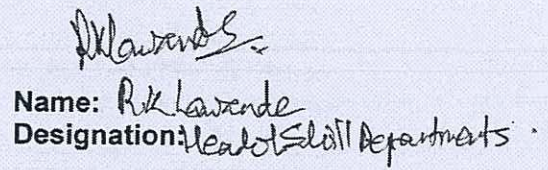 RK Lawrende
Name: RK Lawrende
Designation: Head of Skill Departments.